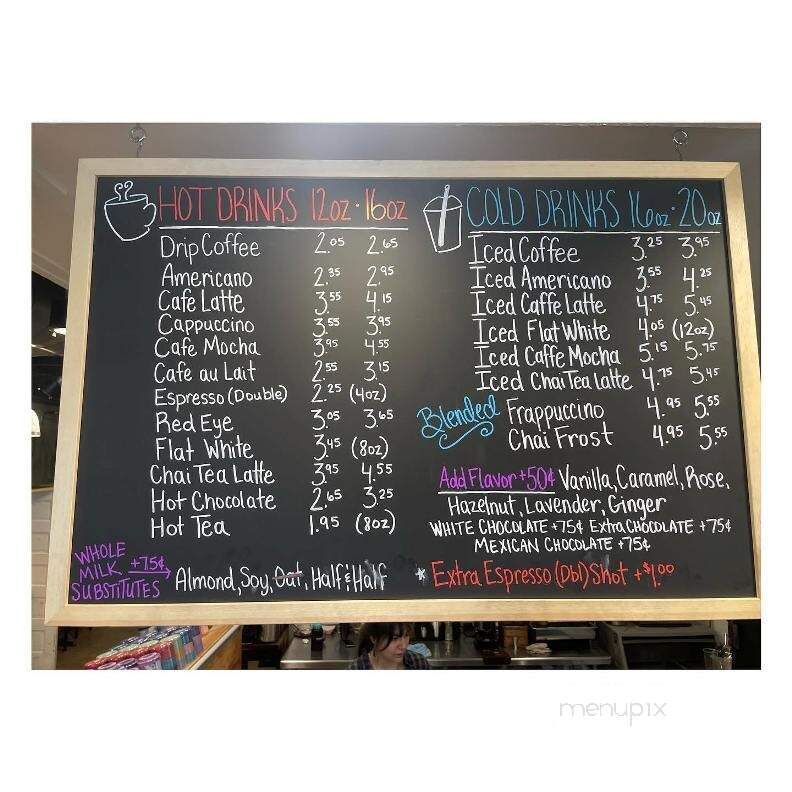 HOT DRINKS 12oz · 16oz
Drip Coffee 2.05 2.65
Americano 2.35 2.95
Cafe Latte 3.55 4.15
Cappuccino 3.55 3.95
Cafe Mocha 3.95 4.55
Cafe au Lait 2.55 3.15
Espresso (Double) 2.25 (4oz)
Red Eye 3.05 3.65
Flat White 3.45 (8oz)
Chai Tea Latte 3.95 4.55
Hot Chocolate 2.65 3.25
Hot Tea 1.95 (8oz)
WHOLE
MILK +75¢
SUBSTITUTES
Almond, Soy, Oat, Half & Half
COLD DRINKS 16oz · 20oz
Iced Coffee 3.25 3.95
Iced Americano 3.55 4.25
Iced Caffe Latte 4.75 5.45
Iced Flat White 4.05 (12oz)
Iced Caffe Mocha 5.15 5.75
Iced Chai Tea latte 4.75 5.45
Blended Frappuccino 4.95 5.55
Chai Frost 4.95 5.55
Add Flavor +50¢ Vanilla, Caramel, Rose,
Hazelnut, Lavender, Ginger
WHITE CHOCOLATE +75¢ Extra CHOCOLATE +75¢
MEXICAN CHOCOLATE +75¢
* Extra Espresso (Dbl) Shot +$1.00
menupix